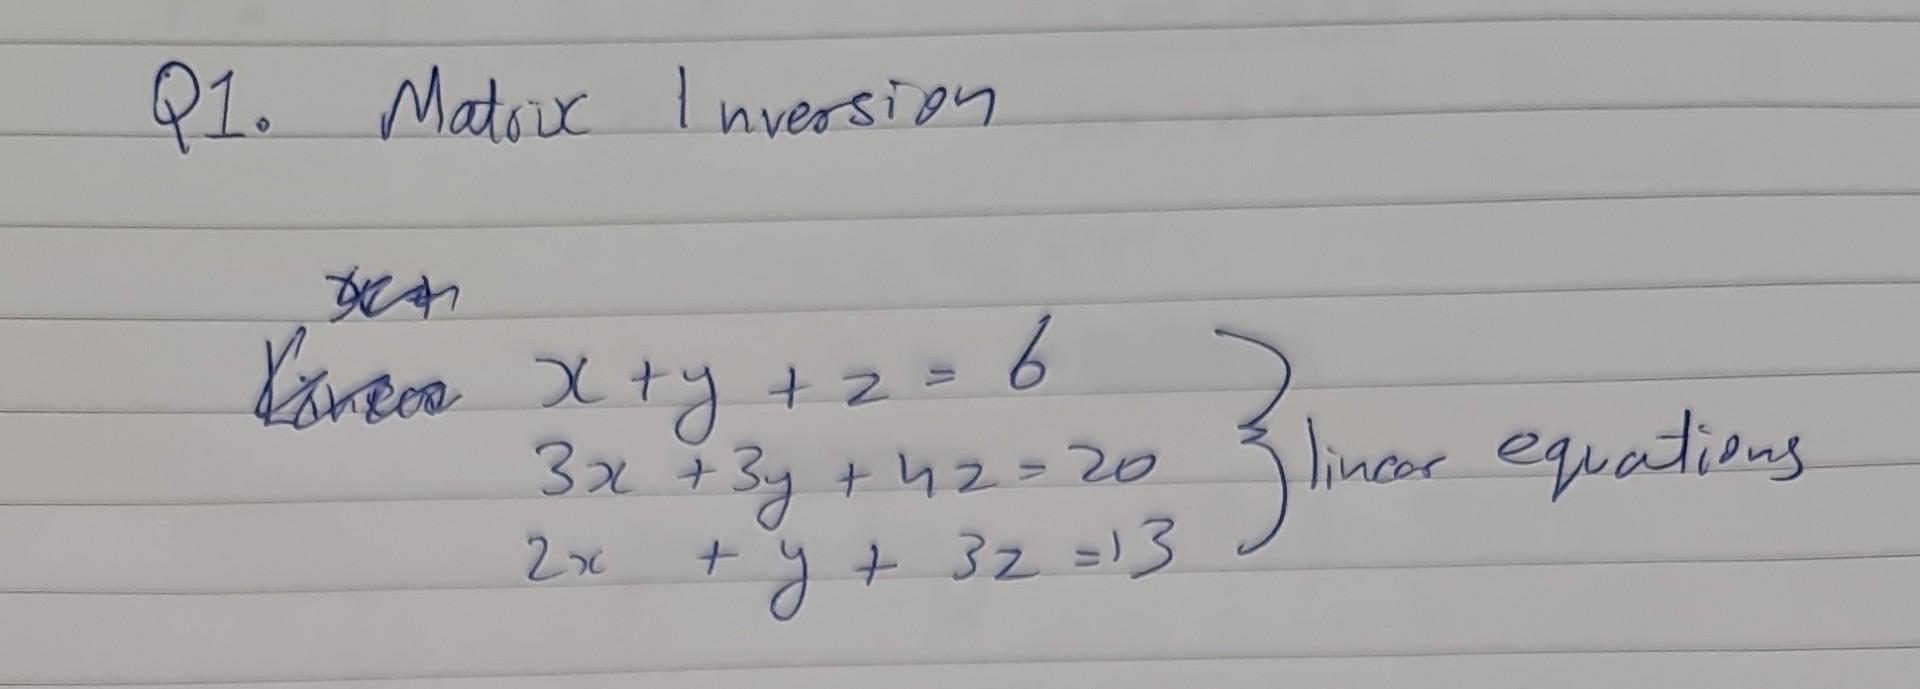 Q1. Matrix Inversion
x + y + z = 6
3x + 3y + 4z = 20
2x + y + 3z = 13
} linear equations